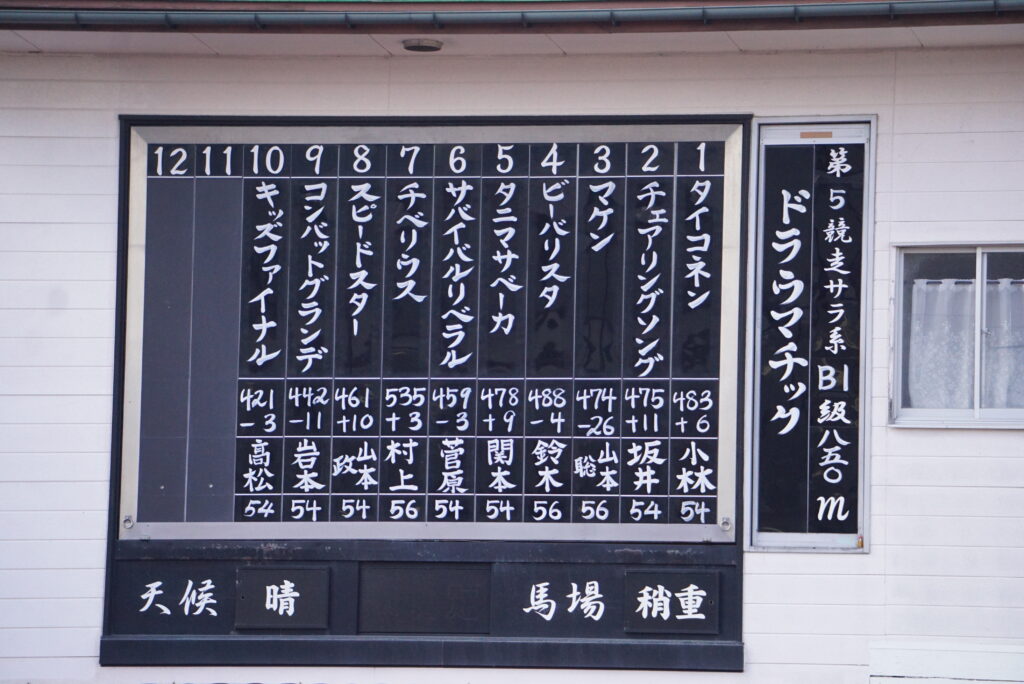 第5競走サラ系B1級八五〇m
ドラウマチック
1
タイコネン
483
+6
小林
54
2
チェアリングソング
475
+11
坂井
54
3
マケン
474
-26
山本聡
56
4
ビーバリスタ
488
-4
鈴木
56
5
タニマサベーカ
478
+9
関本
54
6
サバイバルリベラル
459
-3
菅原
54
7
チベリウス
535
+3
村上
56
8
スピードスター
461
+10
山本政
54
9
コンバットグランデ
442
-11
岩本
54
10
キッズファイナル
421
-3
高松
54
11
12
天候 晴
馬場 稍重